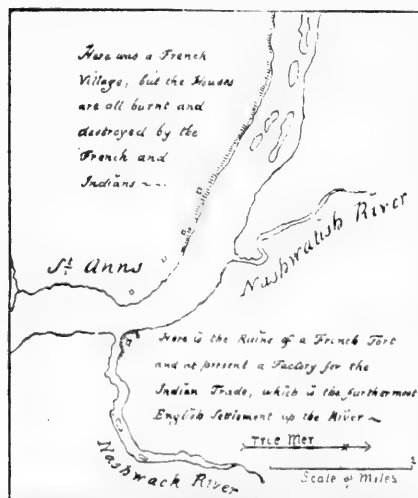 Here was a French
Village, but the Houses
are all burnt and
destroyed by the
French and
Indians
St Anns
Nashwatish River
Here is the Ruins of a French Fort
and at present a Factory for the
Indian Trade, which is the furthermost
English Settlement up the River
True Mer
Scale of Miles
Nashwack River